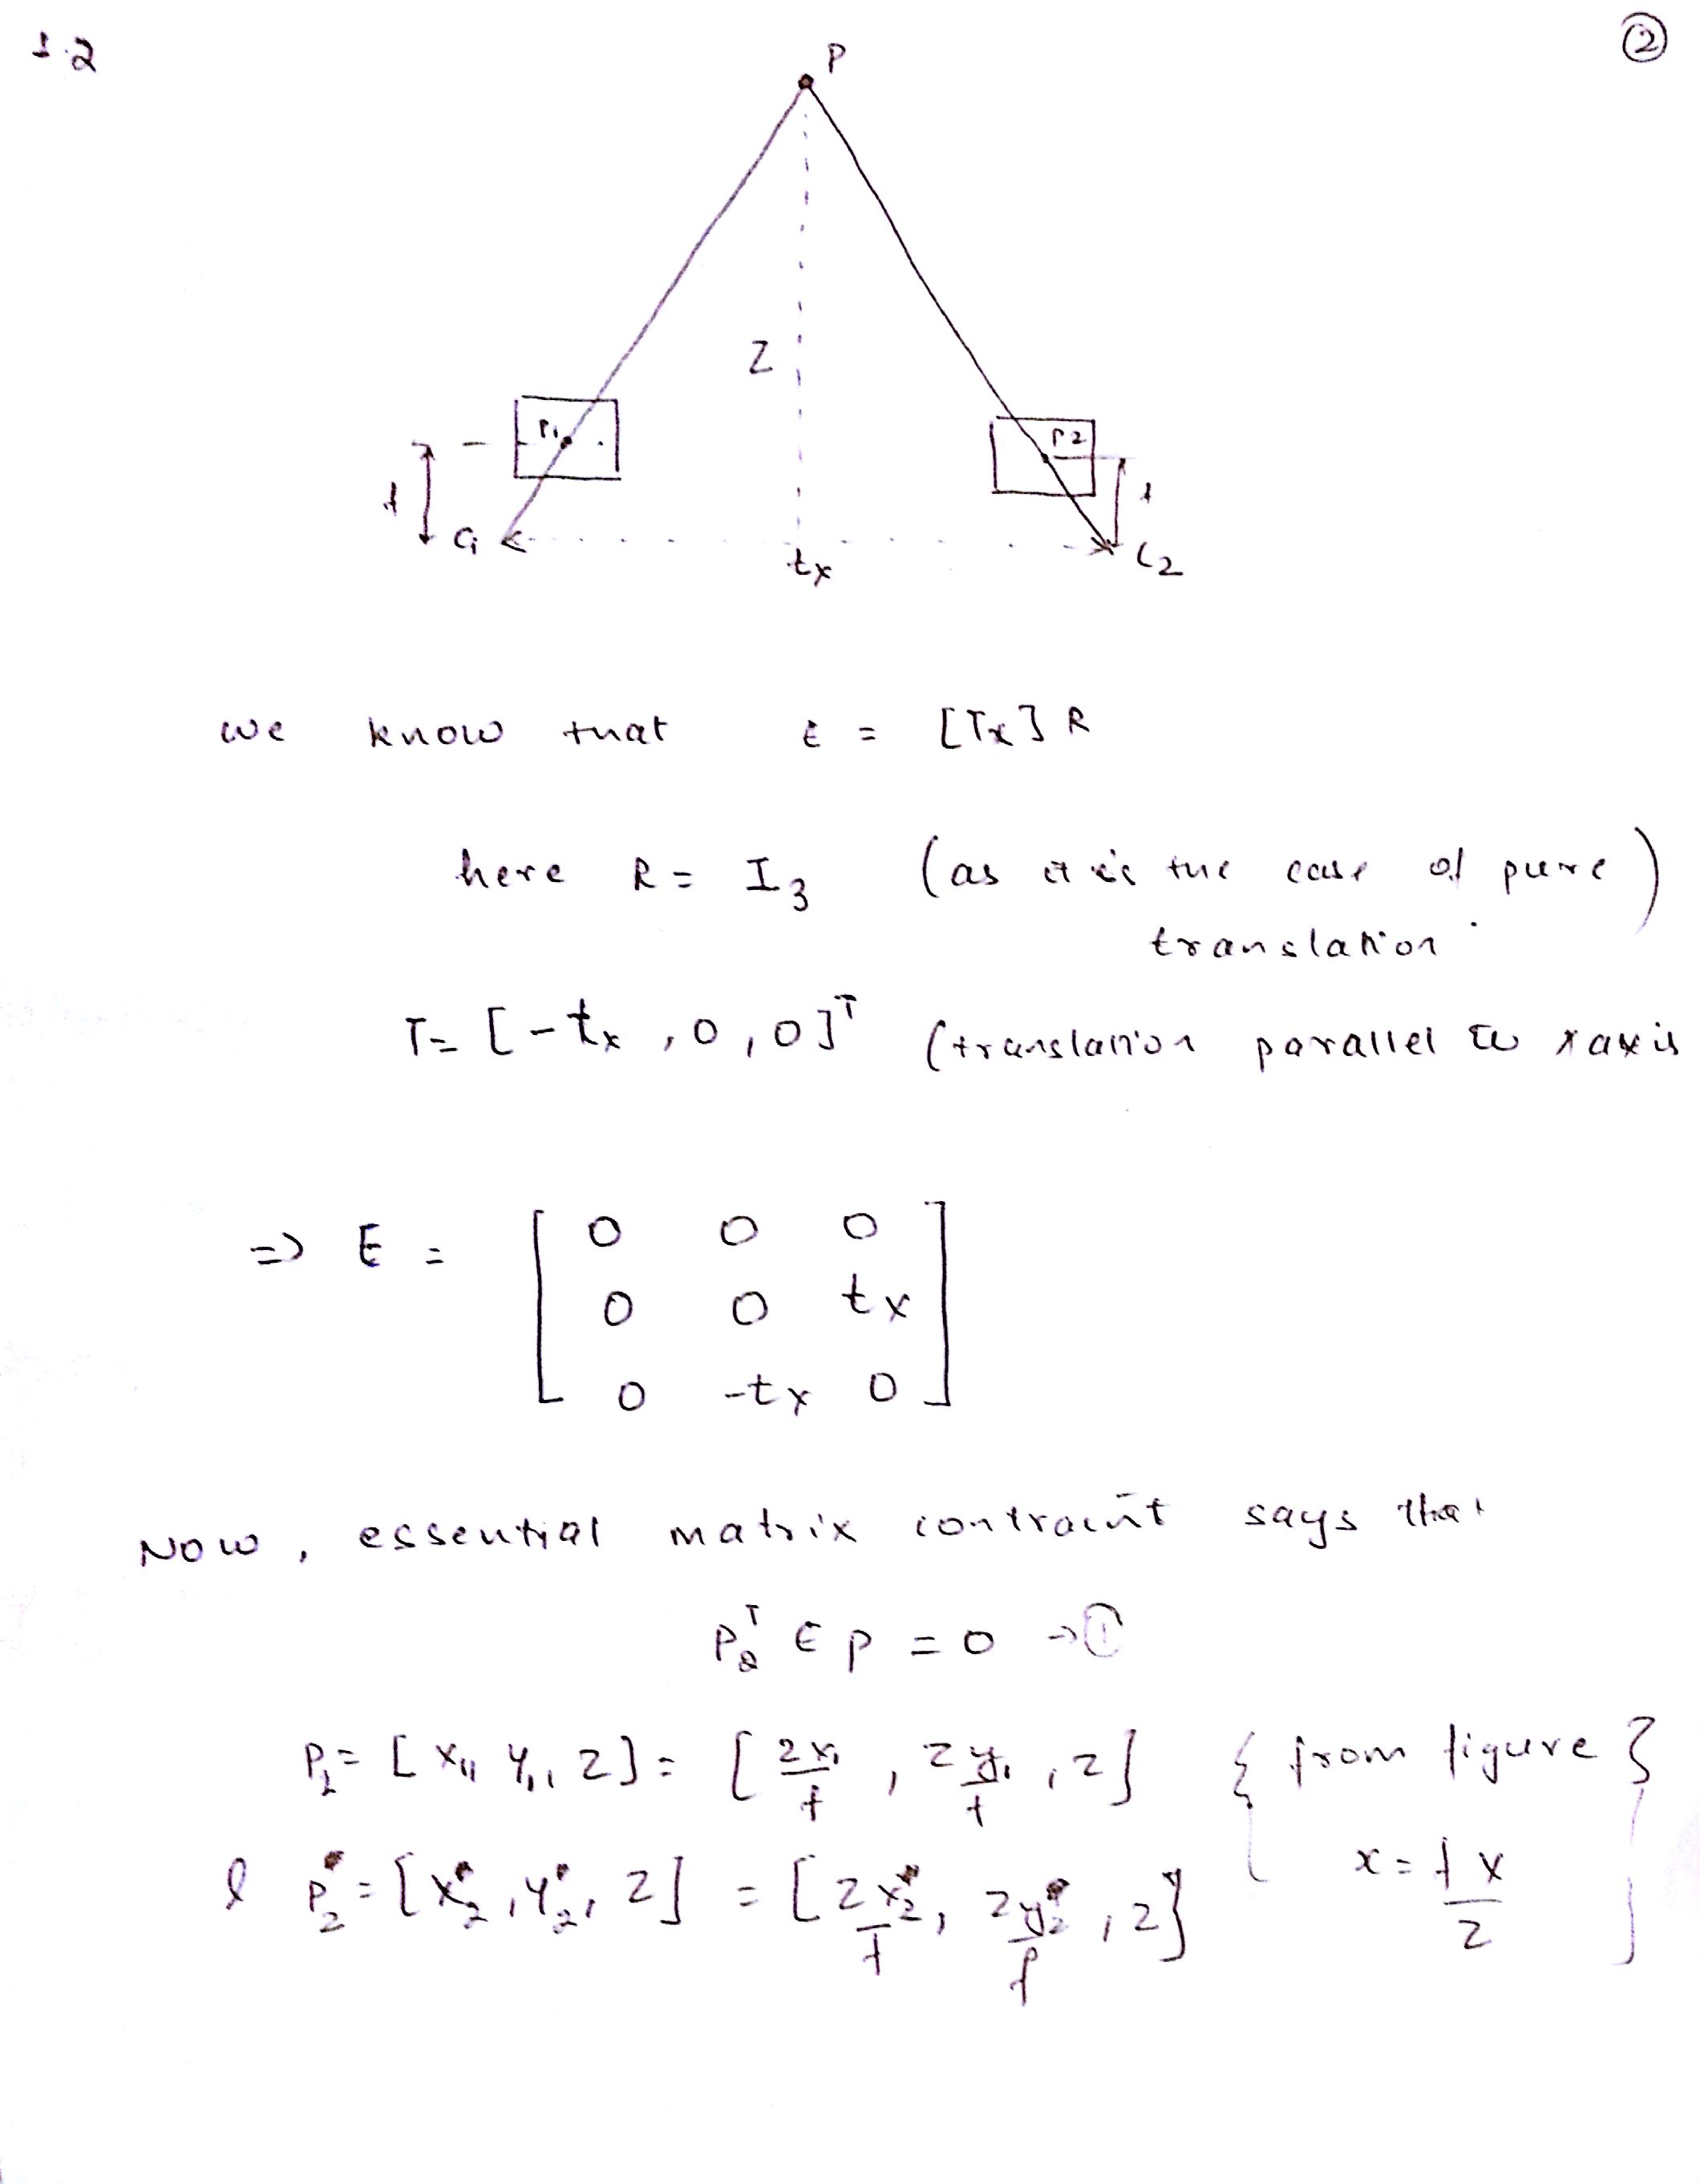 1.2
②
P
Z
P1
P2
f
f
C1
tx
C2
we know that E = [Tx] R
here R = I3 (as it is the case of pure
translation)
T = [-tx, 0, 0]^T (translation parallel to x axis
=> E = [ 0 0 0
0 0 tx
0 -tx 0 ]
Now, essential matrix contraint says that
P2^T E P = 0 → ①
P1 = [X1, Y1, Z] = [Zx1/f, Zy1/f, Z] { from figure }
& P2 = [X2, Y2, Z] = [Zx2/f, Zy2/f, Z] x = fX/Z